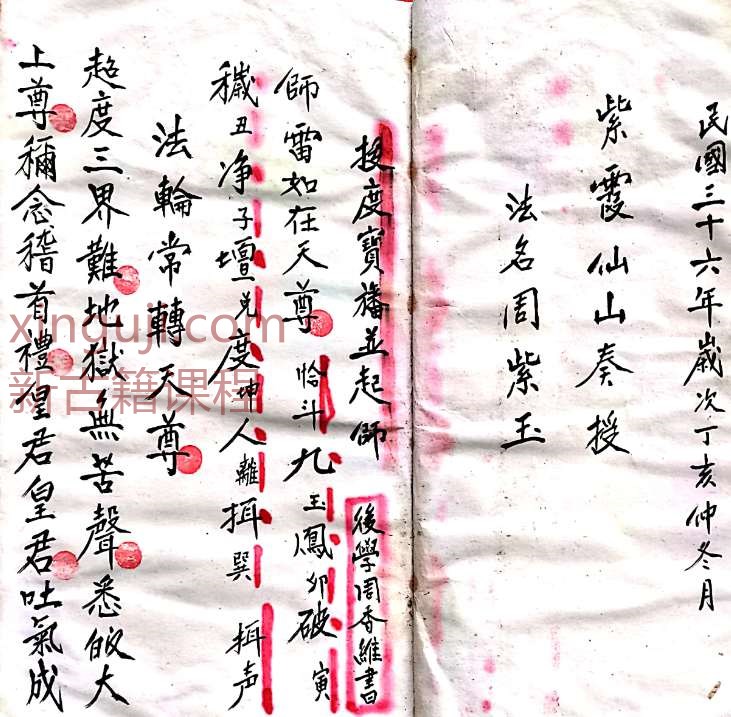 民國三十六年歲次丁亥仲冬月
紫霞仙山奏授
法名周紫玉
投度寶旛並起師
後學周香維書
師雷如在天尊 恰斗九玉鳳卯破寅
穢丑净子壇兑度坤人離揖巽 揖声
法輪常轉天尊
超度三界難地獄無苦聲悉皈大
上尊稱念稽首禮皇君皇君吐氣成
xinguji.com
新古籍课程